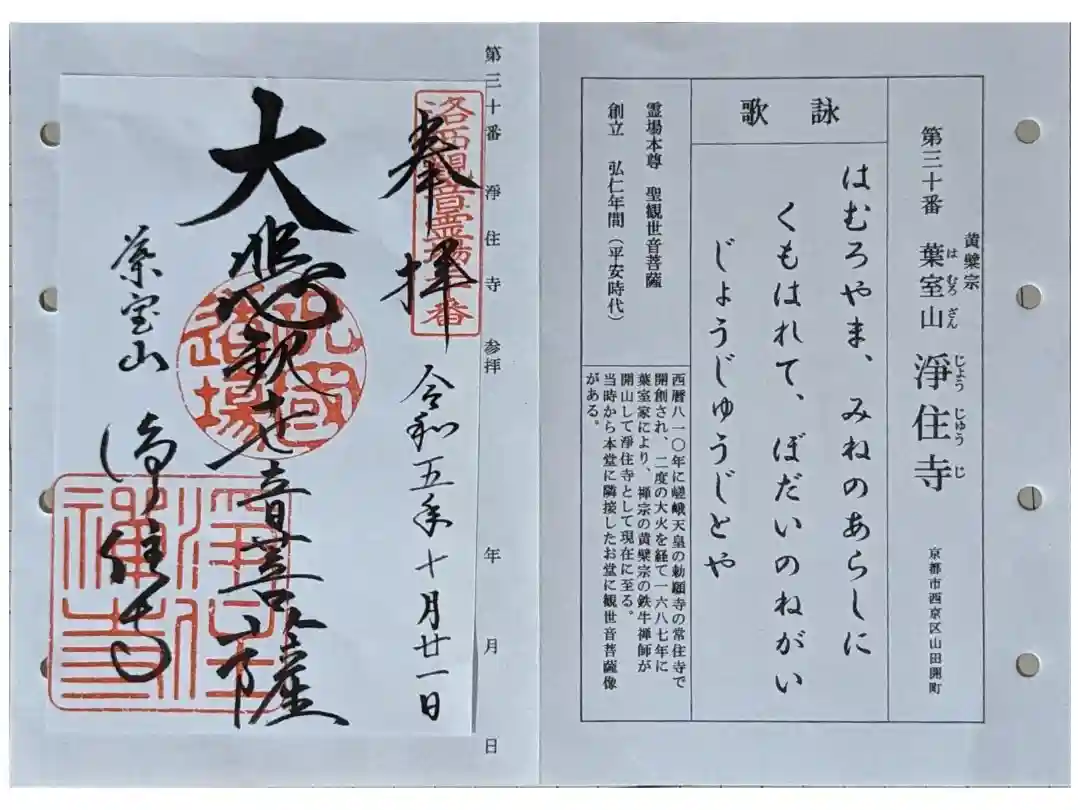 黄檗宗
第三十番 葉室山 淨住寺
は むろ ざん じょう じゅう じ
京都市西京区山田開町
詠歌
はむろやま、みねのあらしに
くもはれて、ぼだいのねがい
じょうじゅうじとや
霊場本尊 聖観世音菩薩
創立 弘仁年間（平安時代）
西暦八一〇年に嵯峨天皇の勅願寺の常住寺で
開創され、二度の大火を経て一六八七年に
葉室家により、禅宗の黄檗宗の鉄牛禅師が
開山して淨住寺として現在に至る。
当時から本堂に隣接したお堂に観世音菩薩像
がある。
第三十番 淨住寺 参拝 年 月 日
洛西観音霊場三十番
奉拝 令和五年十月廿一日
大悲観世音菩薩
葉室山 淨住寺
洛西霊場
淨住禅寺